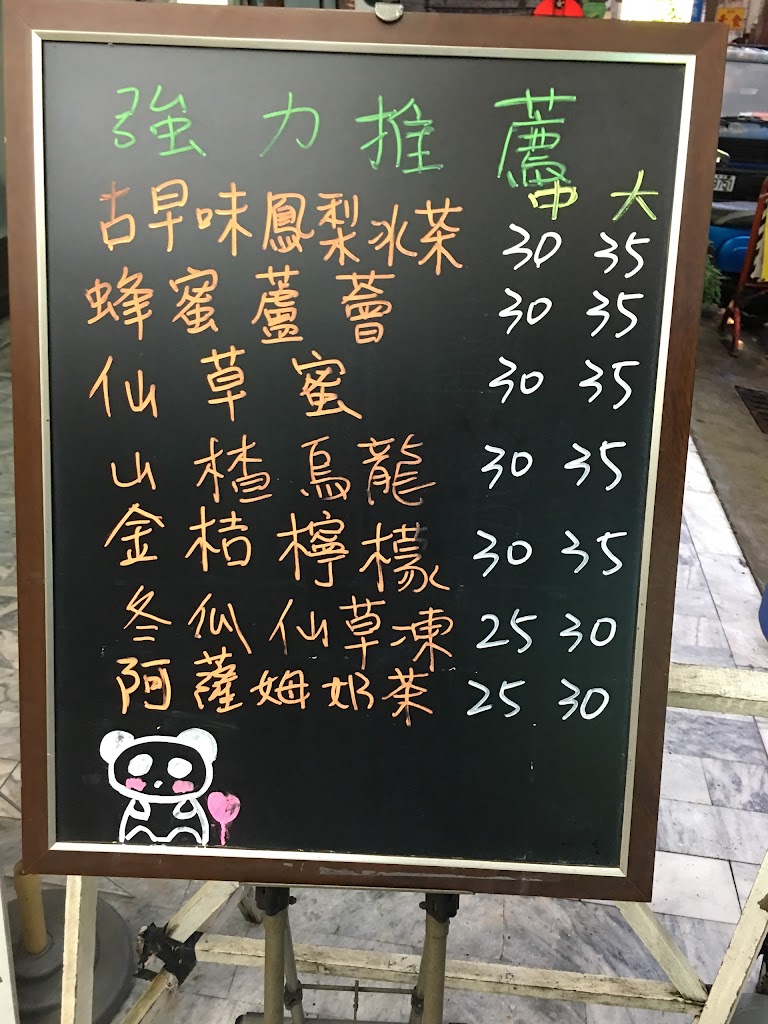 強力推薦
中 大
古早味鳳梨冰茶 30 35
蜂蜜蘆薈 30 35
仙草蜜 30 35
山楂烏龍 30 35
金桔檸檬 30 35
冬瓜仙草凍 25 30
阿薩姆奶茶 25 30